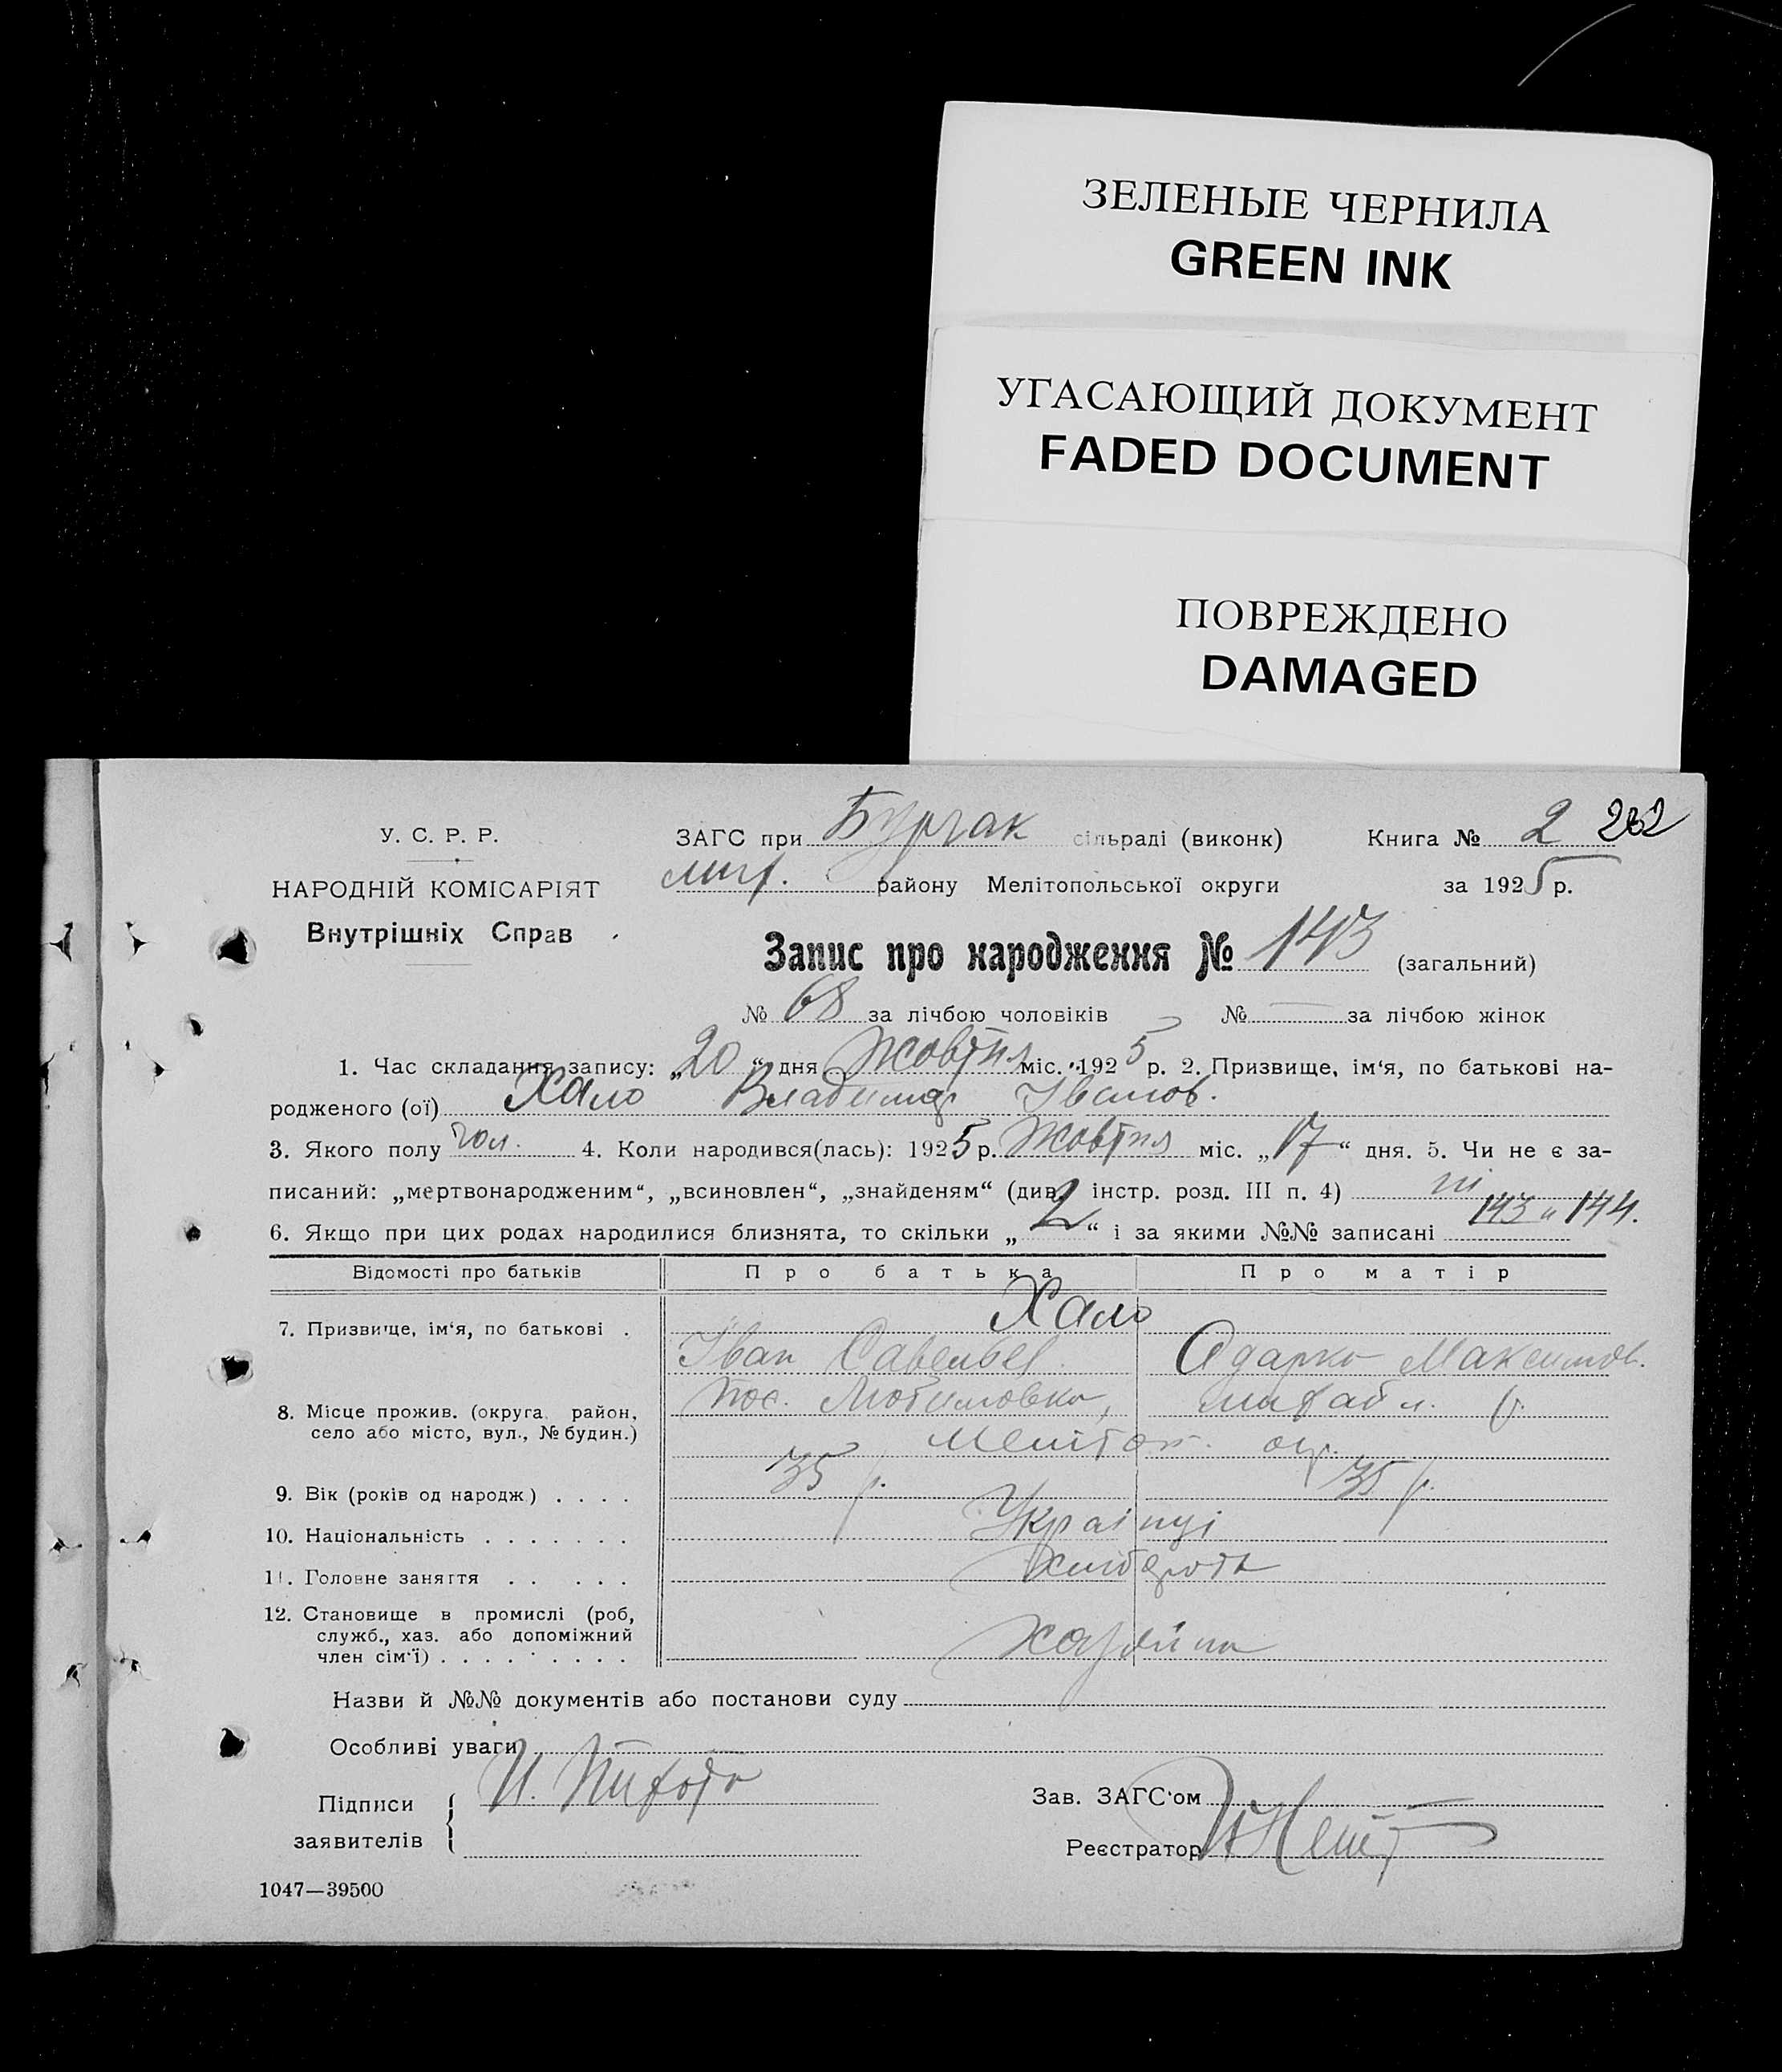 ЗЕЛЕНЫЕ ЧЕРНИЛА
GREEN INK
УГАСАЮЩИЙ ДОКУМЕНТ
FADED DOCUMENT
ПОВРЕЖДЕНО
DAMAGED
У. С. Р. Р.
НАРОДНІЙ КОМІСАРІЯТ
Внутрішніх Справ
ЗАГС при Бурчак сільраді (виконк) Книга № 2 262
району Мелітопольської округи за 1925 р.
Запис про народження № 143 (загальний)
№ 68 за лічбою чоловіків № — за лічбою жінок
1. Час складання запису: „20“ дня Жовтня міс. 1925 р. 2. Призвище, ім'я, по батькові на-
родженого (ої) Хало Владимир Іванов.
3. Якого полу чол. 4. Коли народився(лась): 1925 р. Жовтня міс. „17“ дня. 5. Чи не є за-
писаний: „мертвонародженим“, „всиновлен“, „знайденям“ (див. інстр. розд. III п. 4) ні
6. Якщо при цих родах народилися близнята, то скільки „2“ і за якими №№ записані 143 и 144.
Відомості про батьків Про батька Про матір
7. Призвище, ім'я, по батькові . Хало
Іван Савельев. Одарка Максимов.
8. Місце прожив. (округа, район, село або місто, вул., № будин.) пос. Любимовка, михайл. р.
Меліт. окр.
9. Вік (років од народж) . . . . 35 р. 35 р.
10. Національність . . . . . . . Українці
11. Головне заняття . . . . . хлібороби
12. Становище в промислі (роб, служб., хаз. або допоміжний член сім'ї) . . . . . . . . . хазяїни
Назви й №№ документів або постанови суду
Особливі уваги
Підписи заявителів И.
Зав. ЗАГС'ом
Реєстратор
1047—39500